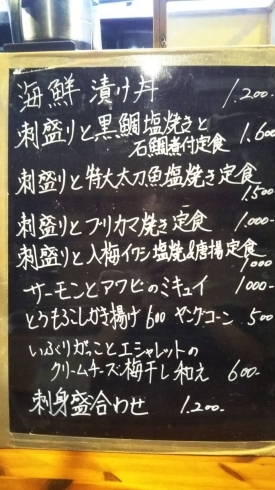 海鮮 漬け丼 1.200-
刺盛りと黒鯛塩焼きと
石鯛煮付定食 1.600
刺盛りと特大太刀魚塩焼き定食
1.500
刺盛りとブリカマ焼き定食 1.000-
刺盛りと入梅イワシ塩焼&唐揚定食
1000
サーモンとアワビのミキュイ 1000-
とうもろこしかき揚げ 600 ヤングコーン 500
いぶりがっことエシャレットの
クリームチーズ梅干し和え 600-
刺身盛合わせ 1.200-